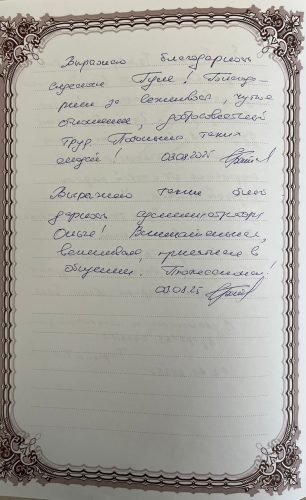 Выражаю благодарность
сережке Гуле! Благода-
рим за вежливость, чуткое
отношение, добросовестный
труд. Побольше таких
людей! 03.08.2025
Выражаю также благо
дарность администратору
Ольге! Внимательная,
вежливая, приятная в
общении. Профессионал!
03.08.25